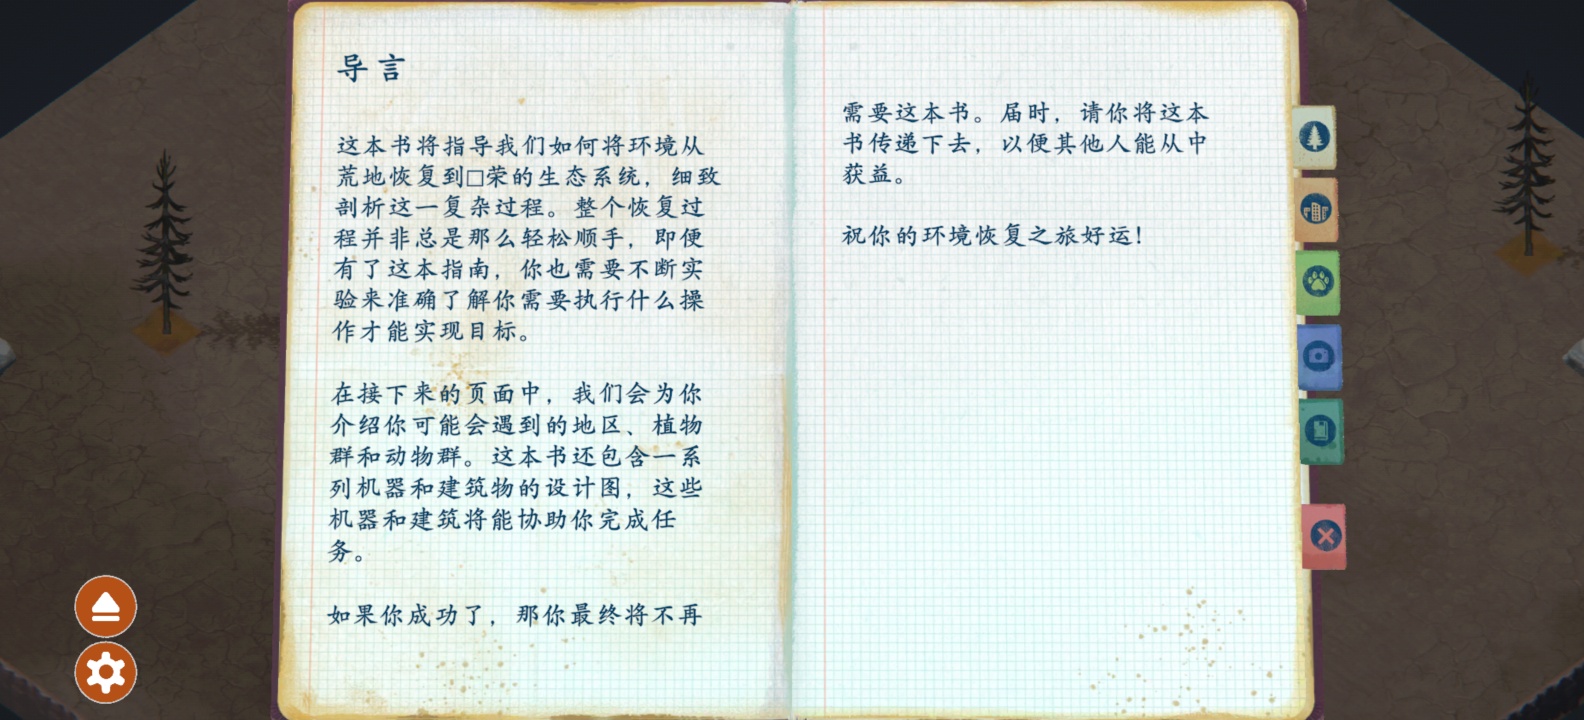 导言
这本书将指导我们如何将环境从
荒地恢复到□荣的生态系统，细致
剖析这一复杂过程。整个恢复过
程并非总是那么轻松顺手，即便
有了这本指南，你也需要不断实
验来准确了解你需要执行什么操
作才能实现目标。
在接下来的页面中，我们会为你
介绍你可能会遇到的地区、植物
群和动物群。这本书还包含一系
列机器和建筑物的设计图，这些
机器和建筑将能协助你完成任
务。
如果你成功了，那你最终将不再
需要这本书。届时，请你将这本
书传递下去，以便其他人能从中
获益。
祝你的环境恢复之旅好运！